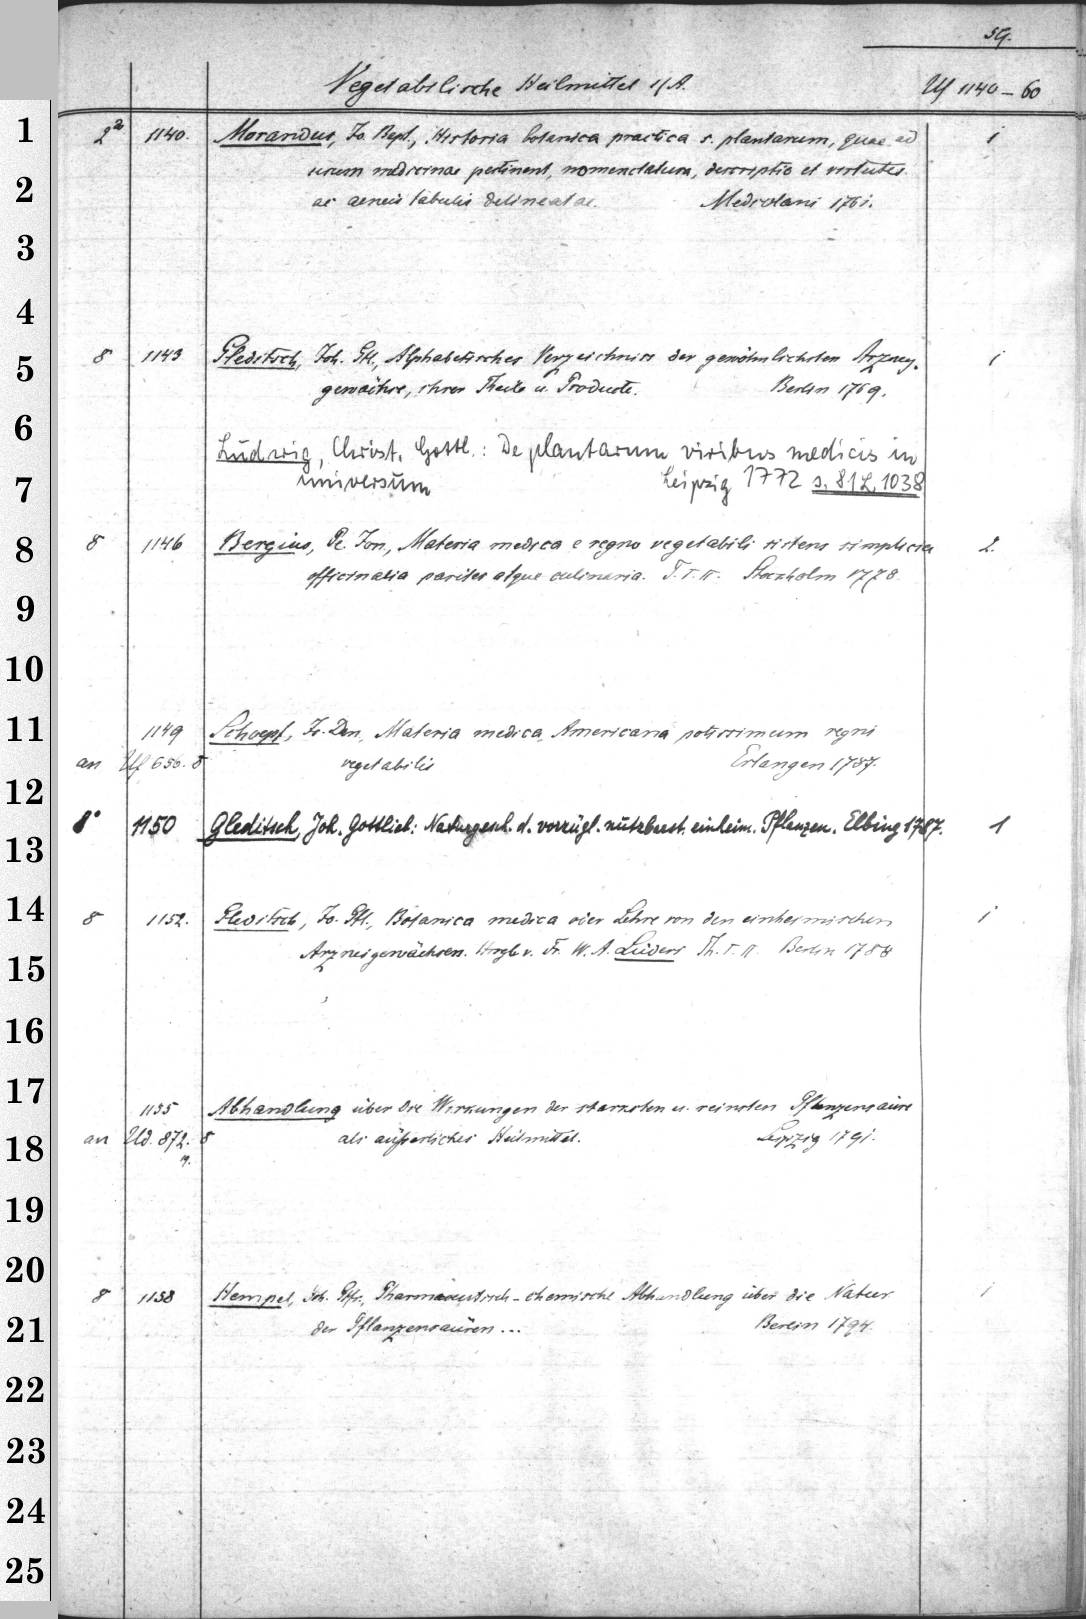 59.
Vegetabilische Heilmittel s/A. Uf 1140 – 60
2° 1140. Morandus, Jo Bapt., Historia botanica practica s. plantarum, quae ad 1
usum medicinae pertinent, nomenclatura, descriptio et virtutes
ac aeneis tabulis delineatae. Mediolani 1761.
8 1143 Gleditsch, Joh. Gtl., Alphabetisches Verzeichniss der gewöhnlichsten Arzney- 1
gewächse, ihrer Theile u. Producte. Berlin 1769.
Ludwig, Christ. Gottl.: De plantarum viribus medicis in
universum Leipzig 1772 s. 81 L. 1038
8 1146 Bergius, Pe. Jon., Materia medica e regno vegetabili sistens simplicia 2.
officinalia pariter atque culinaria. T. I. II. Stockholm 1778.
1149 Schoepf, Jo. Dav., Materia medica, Americana potissimum regni
an Uf 656. 8 vegetabilis Erlangen 1787.
8° 1150 Gleditsch, Joh. Gottlieb: Naturgesch. d. vorzügl. nützbarst. einheim. Pflanzen. Elbing 1787. 1
8 1152. Gleditsch, Jo. Gtl., Botanica medica oder Lehre von den einheimischen 1
Arzneigewächsen. Hrsgb v. Fr. W. A. Lüders Th. I. II. Berlin 1788
1155 Abhandlung über die Wirkungen der starksten u. reinsten Pflanzensäure
an Ud. 872. 8 als äußerliches Heilmittel. Leipzig 1791.
8 1158 Hempel, Joh. Gfr., Pharmaceutisch-chemische Abhandlung über die Natur 1
der Pflanzensäuren ... Berlin 1794.
1
2
3
4
5
6
7
8
9
10
11
12
13
14
15
16
17
18
19
20
21
22
23
24
25